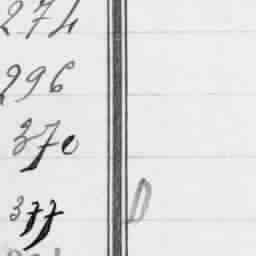 274
296
370
377 D